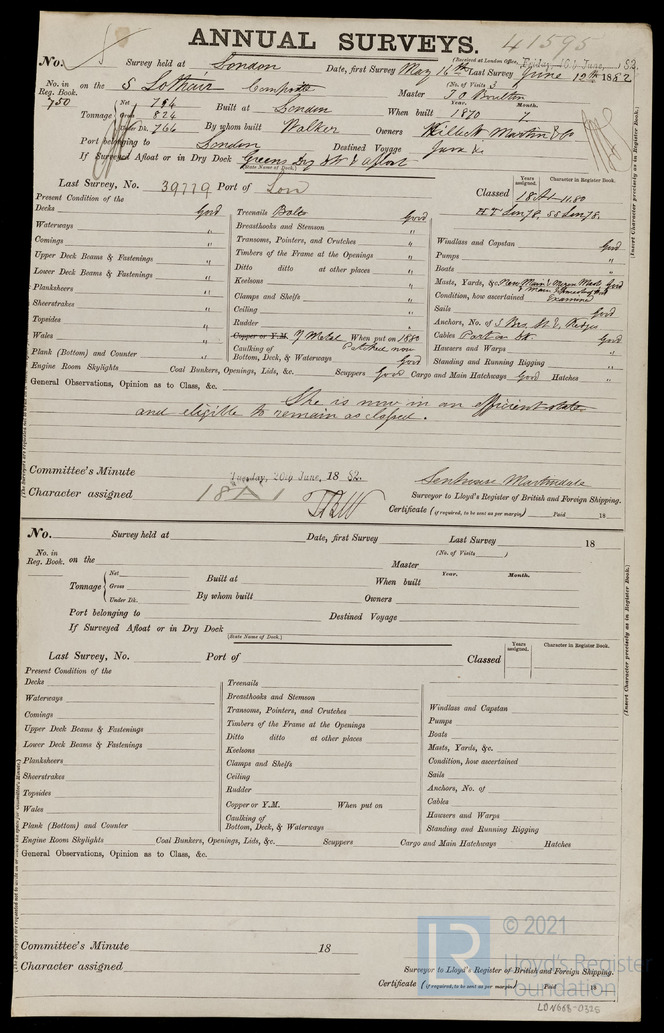 ANNUAL SURVEYS. 41595
No. Survey held at London Date, first Survey May 16th Last Survey June 12th 1882
(Received at London Office, Friday, 16th June, 1882
No. in Reg. Book. on the S Lothair Composite Master (No. of Visits 3)
750 Tonnage Net 794 Gross 824 Under Dk. 766 Built at London When built Year. 1870 Month. 7
By whom built Walker Owners Killick Martin & Co
Port belonging to London Destined Voyage
If Surveyed Afloat or in Dry Dock Greens Dry Dk & afloat
(State Name of Dock.)
Last Survey, No. 39779 Port of Lon Classed Years assigned. 18 A1 11.80 Character in Register Book.
H.T. Lon 78. SS Lon 78.
(Insert Character precisely as in Register Book.)
Present Condition of the
Decks Good
Waterways "
Comings "
Upper Deck Beams & Fastenings "
Lower Deck Beams & Fastenings "
Planksheers "
Sheerstrakes "
Topsides "
Wales "
Plank (Bottom) and Counter "
Treenails Bolts Good
Breasthooks and Stemson "
Transoms, Pointers, and Crutches "
Timbers of the Frame at the Openings "
Ditto ditto at other places "
Keelsons "
Clamps and Shelfs "
Ceiling "
Rudder "
Copper or Y.M. Y Metal When put on 1880
Caulking of Bottom, Deck, & Waterways Good
Windlass and Capstan Good
Pumps "
Boats "
Masts, Yards, &c. Good
Condition, how ascertained Examined
Sails Good
Anchors, No. of
Cables Good
Hausers and Warps "
Standing and Running Rigging "
Engine Room Skylights Coal Bunkers, Openings, Lids, &c. Scuppers Good Cargo and Main Hatchways Good Hatches "
General Observations, Opinion as to Class, &c.
She is now in an efficient state
and eligible to remain as classed.
Committee's Minute Tuesday, 20th June, 1882.
Character assigned 18 A 1
Surveyor to Lloyd's Register of British and Foreign Shipping.
Certificate (if required, to be sent as per margin) Paid 18
No. Survey held at Date, first Survey Last Survey 18
No. in Reg. Book. on the Master (No. of Visits )
Tonnage Net Gross Under Dk. Built at When built Year. Month.
By whom built Owners
Port belonging to Destined Voyage
If Surveyed Afloat or in Dry Dock
(State Name of Dock.)
Last Survey, No. Port of Classed Years assigned. Character in Register Book.
(Insert Character precisely as in Register Book.)
Present Condition of the
Decks
Waterways
Comings
Upper Deck Beams & Fastenings
Lower Deck Beams & Fastenings
Planksheers
Sheerstrakes
Topsides
Wales
Plank (Bottom) and Counter
Treenails
Breasthooks and Stemson
Transoms, Pointers, and Crutches
Timbers of the Frame at the Openings
Ditto ditto at other places
Keelsons
Clamps and Shelfs
Ceiling
Rudder
Copper or Y.M. When put on
Caulking of Bottom, Deck, & Waterways
Windlass and Capstan
Pumps
Boats
Masts, Yards, &c.
Condition, how ascertained
Sails
Anchors, No. of
Cables
Hausers and Warps
Standing and Running Rigging
Engine Room Skylights Coal Bunkers, Openings, Lids, &c. Scuppers Cargo and Main Hatchways Hatches
General Observations, Opinion as to Class, &c.
Committee's Minute 18
Character assigned
Surveyor to Lloyd's Register of British and Foreign Shipping.
Certificate (if required, to be sent as per margin) Paid 18
LR © 2021
Lloyd's Register
Foundation
LON668-0325